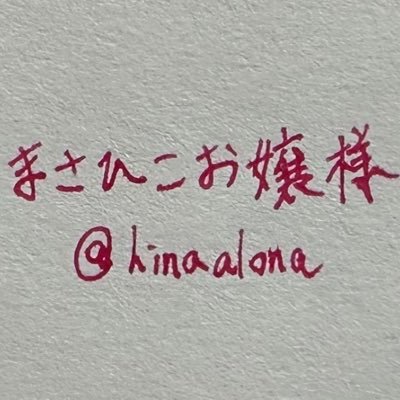 まさひこお嬢様
@hinaalona